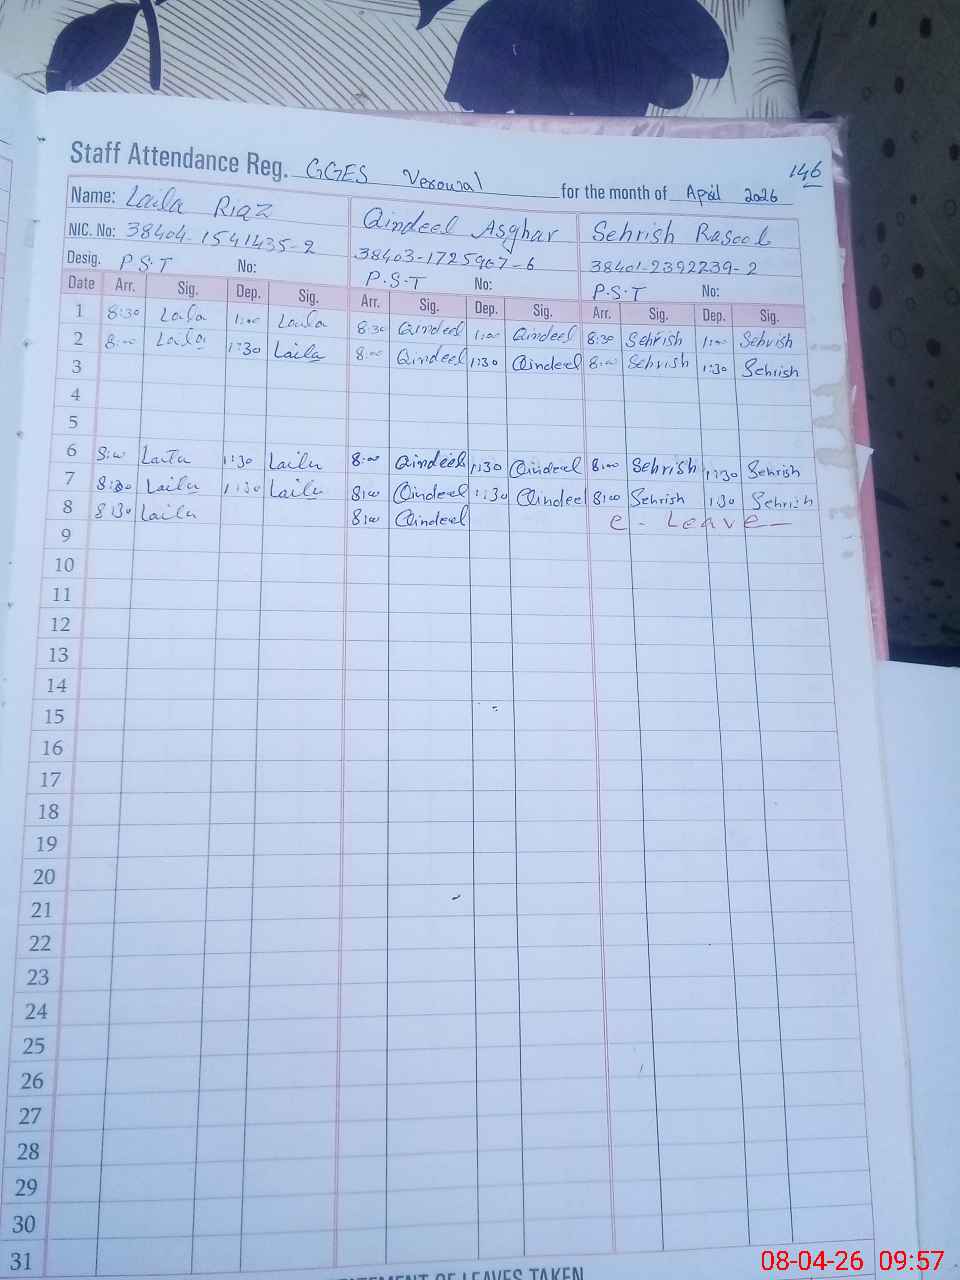 146
Staff Attendance Reg. GGES Verowal for the month of April 2026
Name: Laila Riaz Qindeel Asghar Sehrish Rasool
NIC. No: 38404-1541435-2 38403-1725967-6 38401-2392239-2
Desig. P.S.T No: P.S.T No: P.S.T No:
Date Arr. Sig. Dep. Sig. Arr. Sig. Dep. Sig. Arr. Sig. Dep. Sig.
1 8:30 Laila 1:00 Laila 8:30 Qindeel 1:00 Qindeel 8:30 Sehrish 1:00 Sehrish
2 8:00 Laila 1:30 Laila 8:00 Qindeel 1:30 Qindeel 8:00 Sehrish 1:30 Sehrish
3
4
5
6 8:00 Laila 1:30 Laila 8:00 Qindeel 1:30 Qindeel 8:00 Sehrish 1:30 Sehrish
7 8:00 Laila 1:30 Laila 8:00 Qindeel 1:30 Qindeel 8:00 Sehrish 1:30 Sehrish
8 8:30 Laila 8:00 Qindeel e - Leave -
9
10
11
12
13
14
15
16
17
18
19
20
21
22
23
24
25
26
27
28
29
30
31
STATEMENT OF LEAVES TAKEN
08-04-26 09:57